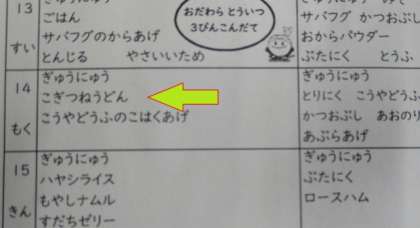 13
すい
ごはん
サバフグのからあげ
とんじる やさいいため
おだわら とういつ
3びんこんだて
サバフグ かつおぶし
おからパウダー
ぶたにく とうふ
14
もく
ぎゅうにゅう
こぎつねうどん
こうやどうふのこはくあげ
ぎゅうにゅう
とりにく こうやどうふ
かつおぶし あおのり
あぶらあげ
15
きん
ぎゅうにゅう
ハヤシライス
もやしナムル
すだちゼリー
ぎゅうにゅう
ぶたにく
ロースハム